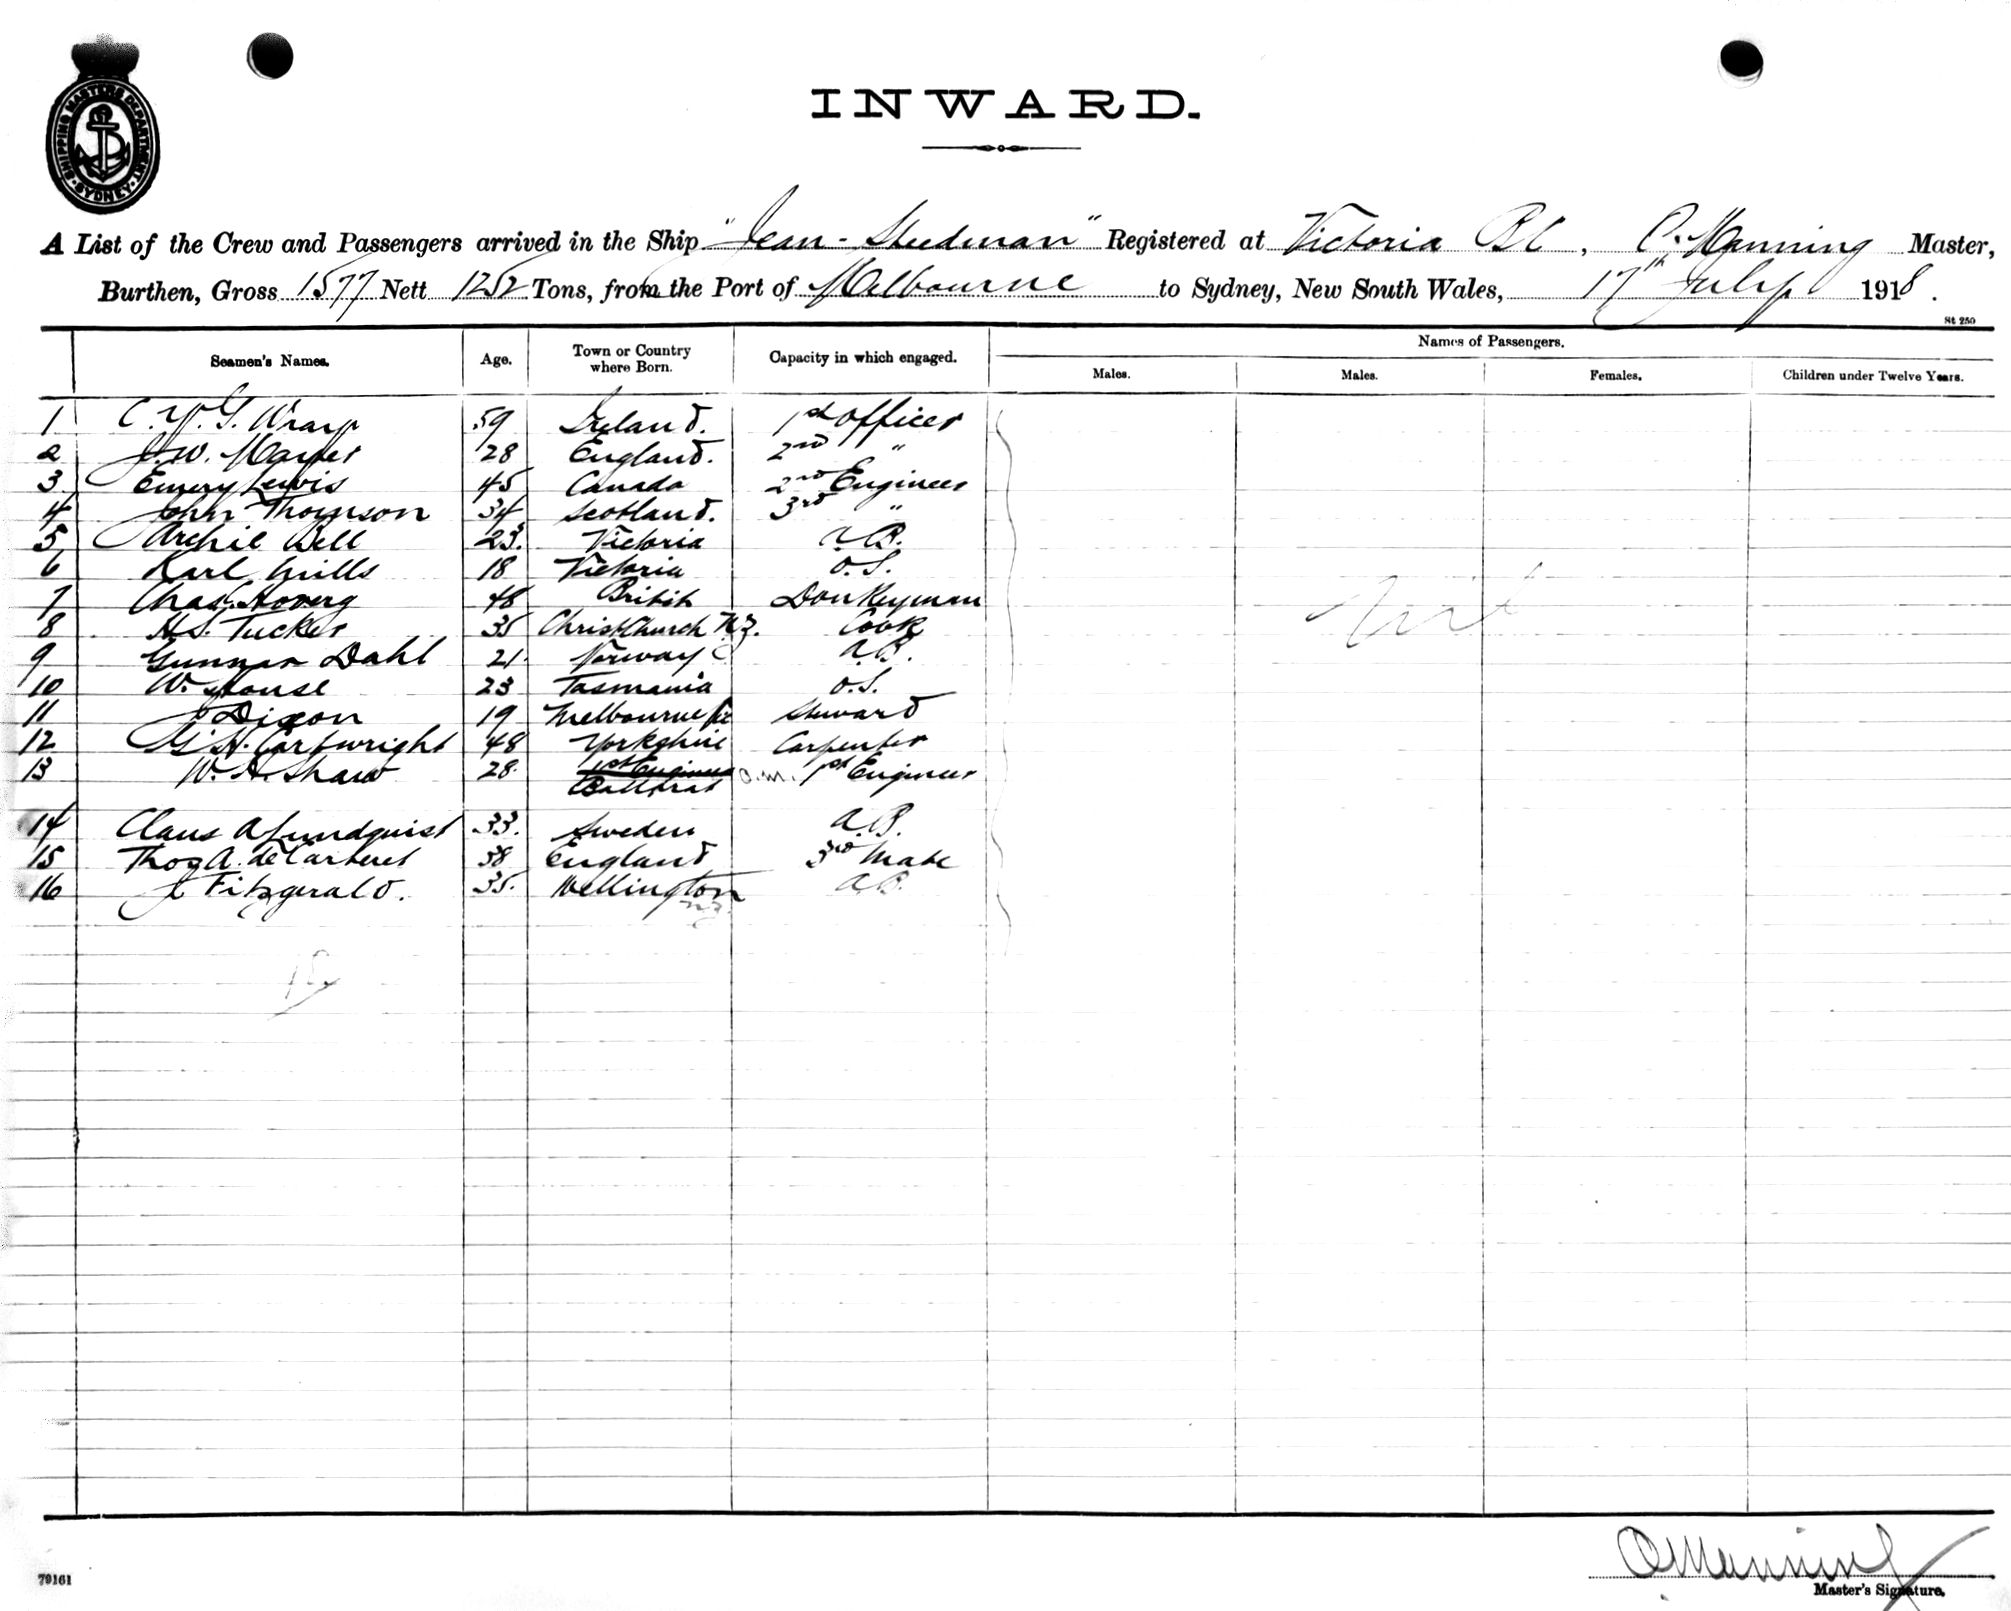 SHIPPING MASTERS DEPARTMENT
SYDNEY
INWARD.
A List of the Crew and Passengers arrived in the Ship "Jean Steedman" Registered at Victoria B C, C. Manning Master,
Burthen, Gross 1577 Nett 1252 Tons, from the Port of Melbourne to Sydney, New South Wales, 17th July 1918.
St 250
Seamen's Names. Age. Town or Country where Born. Capacity in which engaged. Names of Passengers.
Males. Males. Females. Children under Twelve Years.
1 C. W. G. 59 Ireland. 1st Officer
2 J. W. 28 England. 2nd "
3 Emery Lewis 45 Canada 2nd Engineer
4 John Thomson 34 Scotland. 3rd "
5 Archie Bell 23. Victoria A.B.
6 Karl Mills 18 Victoria O.S.
7 Chas. 48 British Donkeyman Nil
8 H.S. Tucker 35 Christchurch N.Z. Cook
9 Gunnar Dahl 21. Norway A.B.
10 W. House 23 Tasmania O.S.
11 J Dixon 19 Melbourne Vic Steward
12 G. H. Cartwright 48 Yorkshire Carpenter
13 W. A. Shaw 28. 1st Engineer O.M. 1st Engineer
Ballarat
14 Claus A Lundquist 33. Sweden A.B.
15 Thos A. de Carteret 38 England 3rd Mate
16 J Fitzgerald. 35. Wellington A.B.
N.Z.
C Manning
79161
Master's Signature.